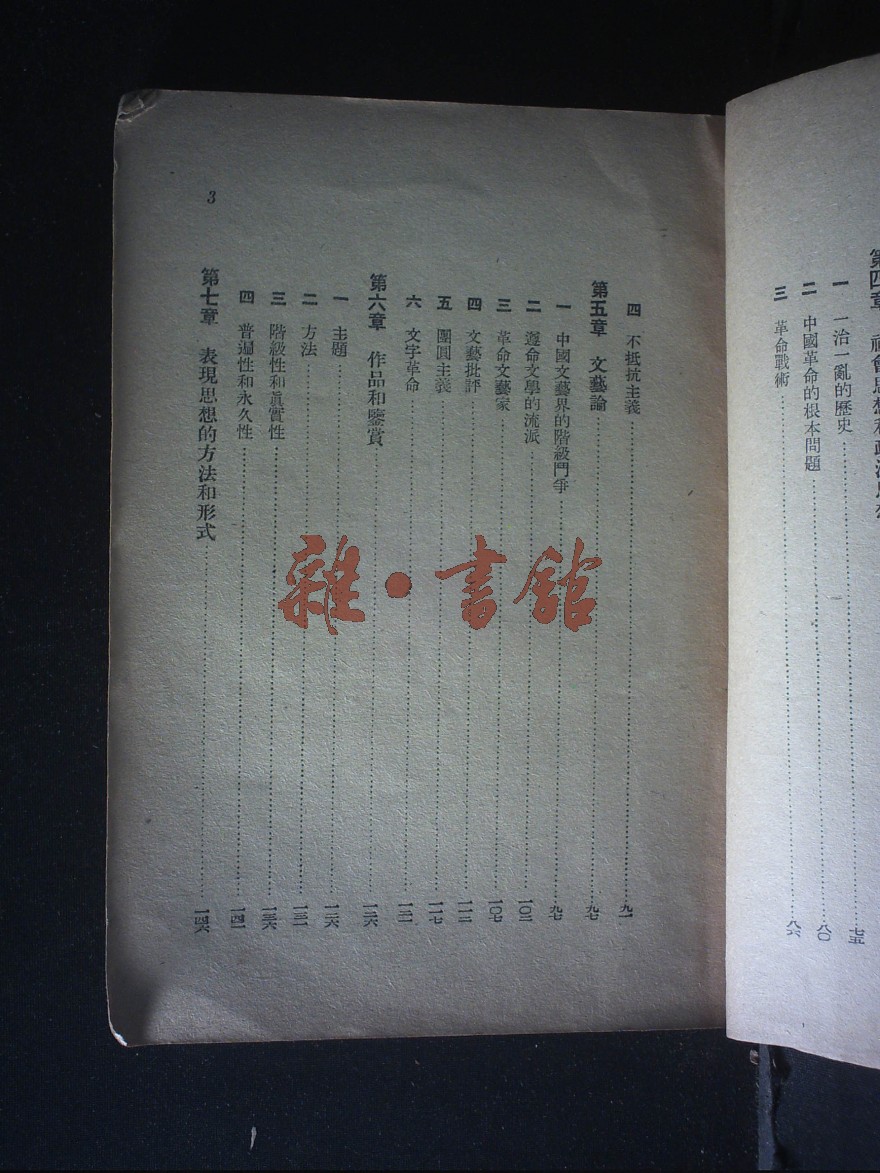 第四章 社會思想和政治思想
一 一治一亂的歷史 七五
二 中國革命的根本問題 八〇
三 革命戰術 八六
四 不抵抗主義 九一
第五章 文藝論 九七
一 中國文藝界的階級鬥爭 九七
二 遵命文學的流派 一〇三
三 革命文藝家 一〇七
四 文藝批評 一一二
五 團圓主義 一一七
六 文字革命 一二一
第六章 作品和鑒賞 一二六
一 主題 一二六
二 方法 一三一
三 階級性和眞實性 一三六
四 普遍性和永久性 一四一
第七章 表現思想的方法和形式 一四六
3
雜·書館